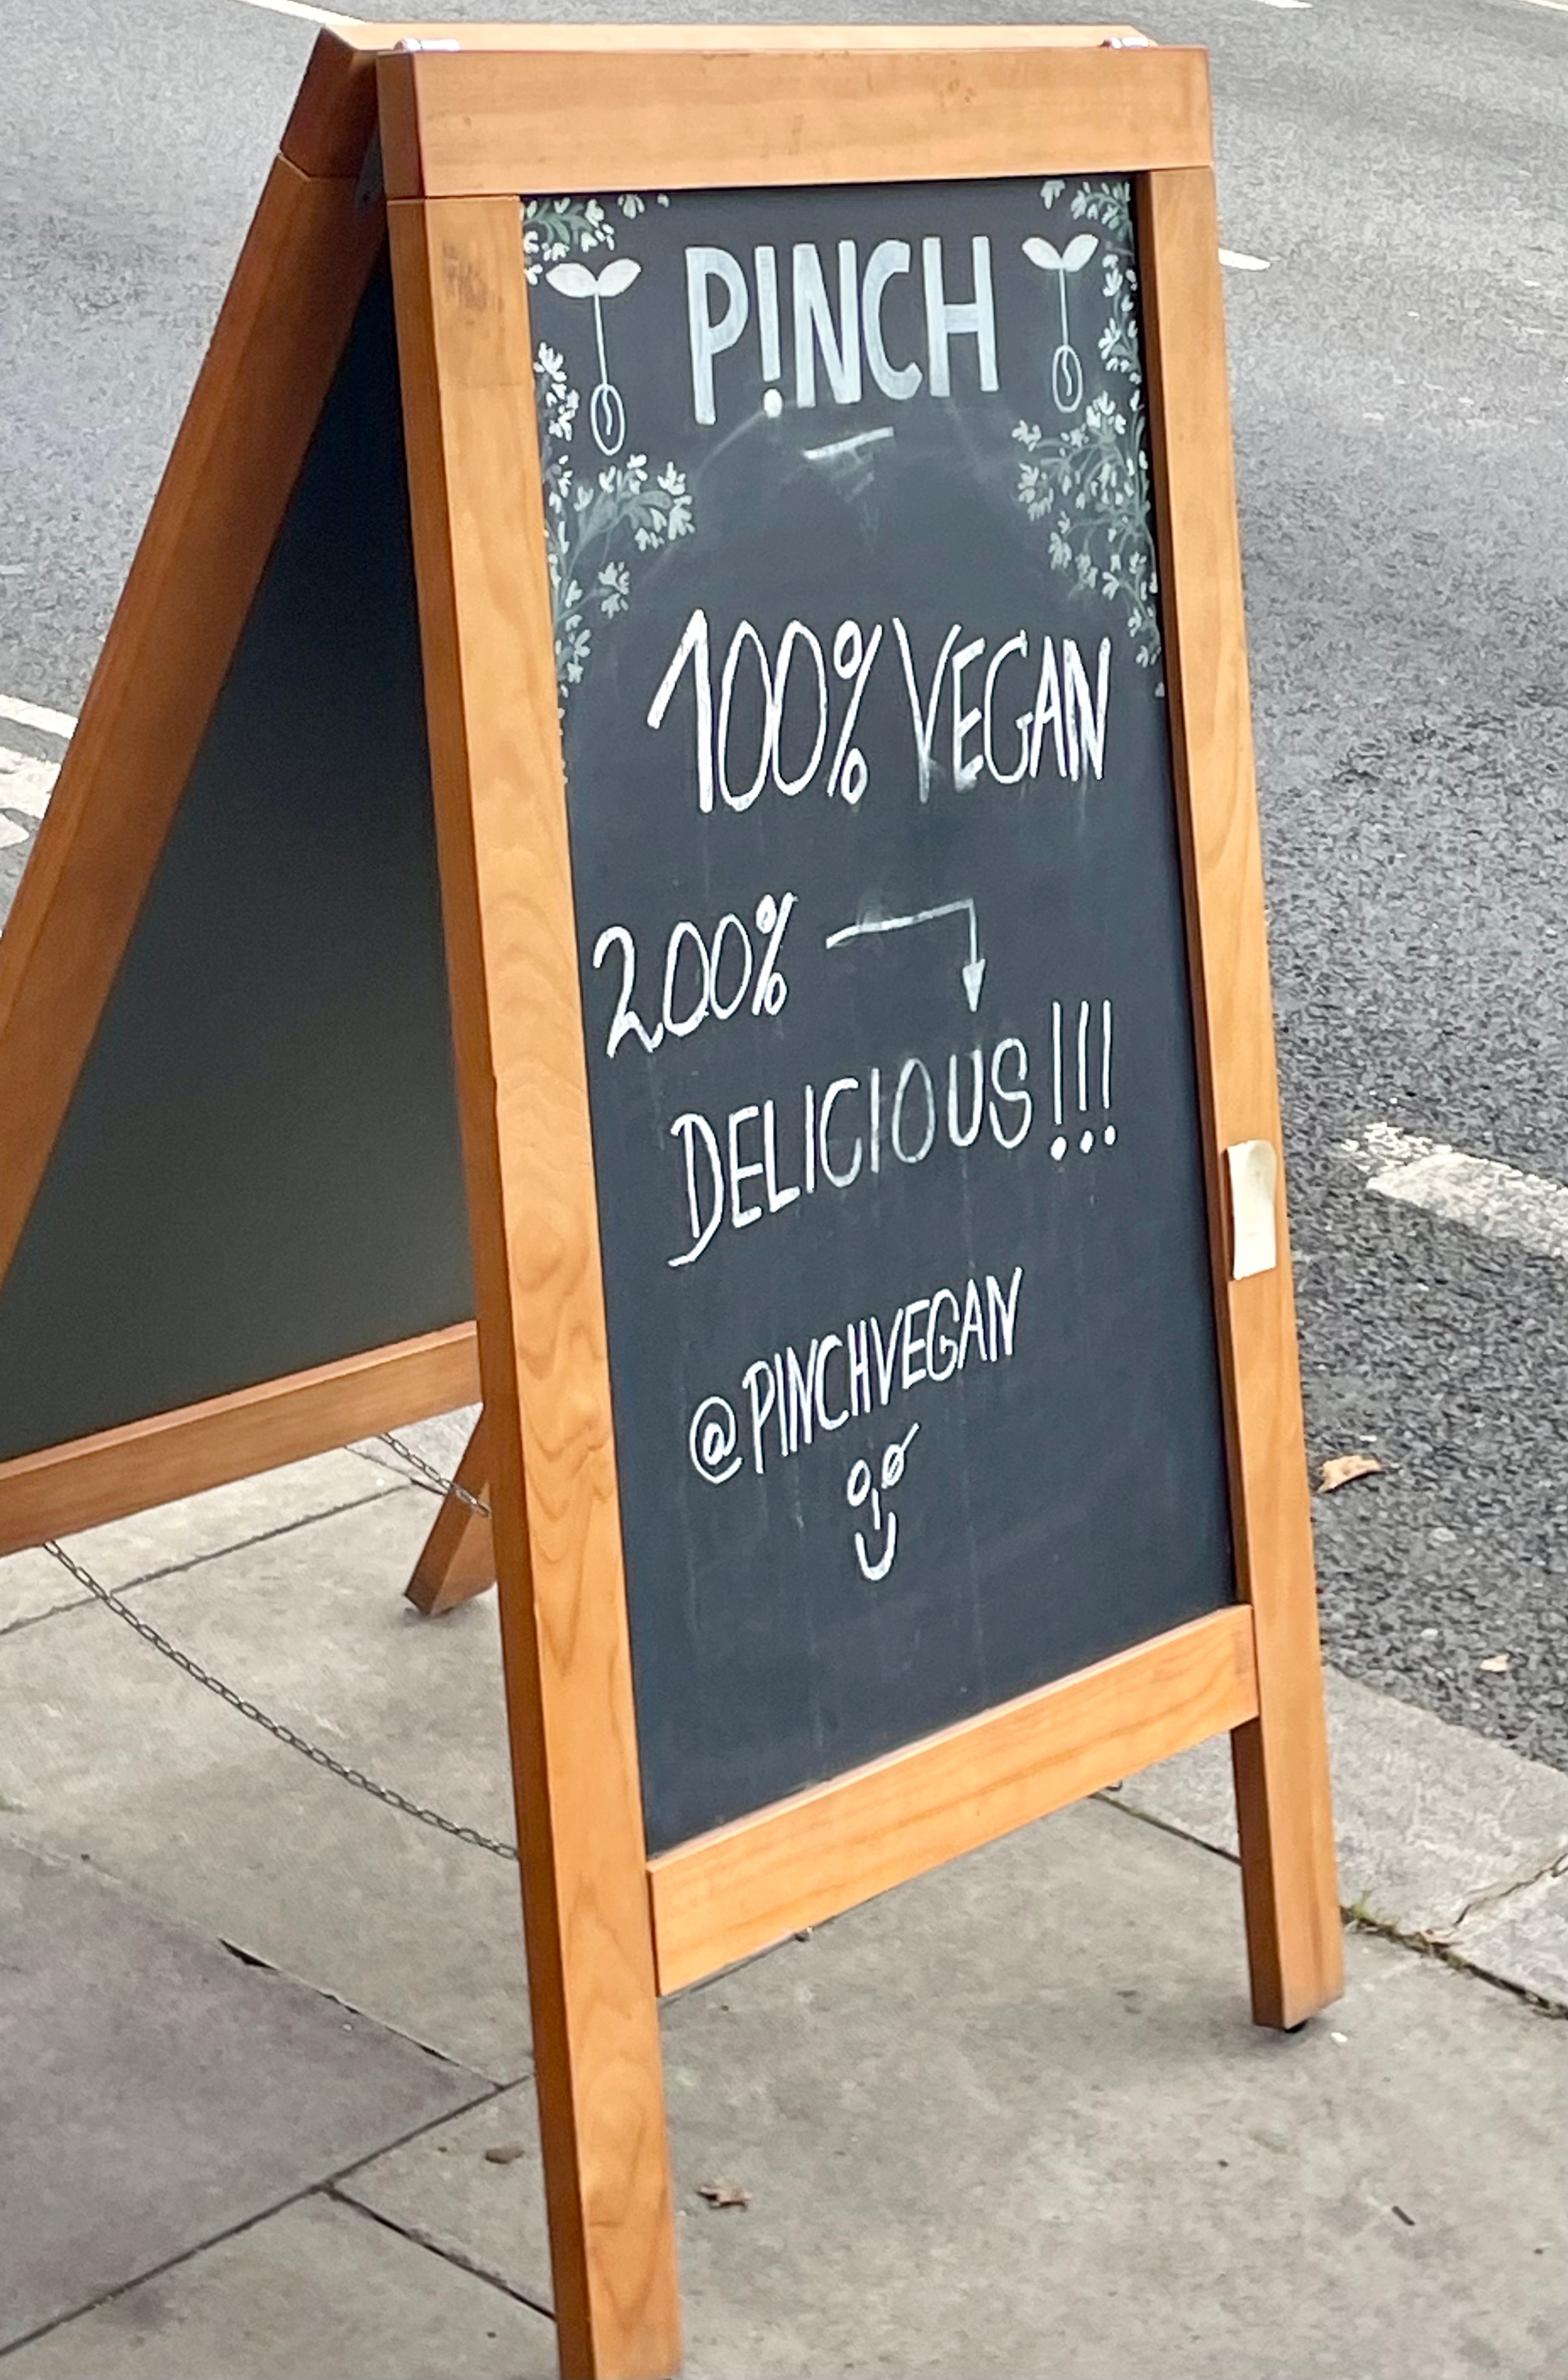 P!NCH
100% VEGAN
200%
DELICIOUS!!!
@PINCHVEGAN